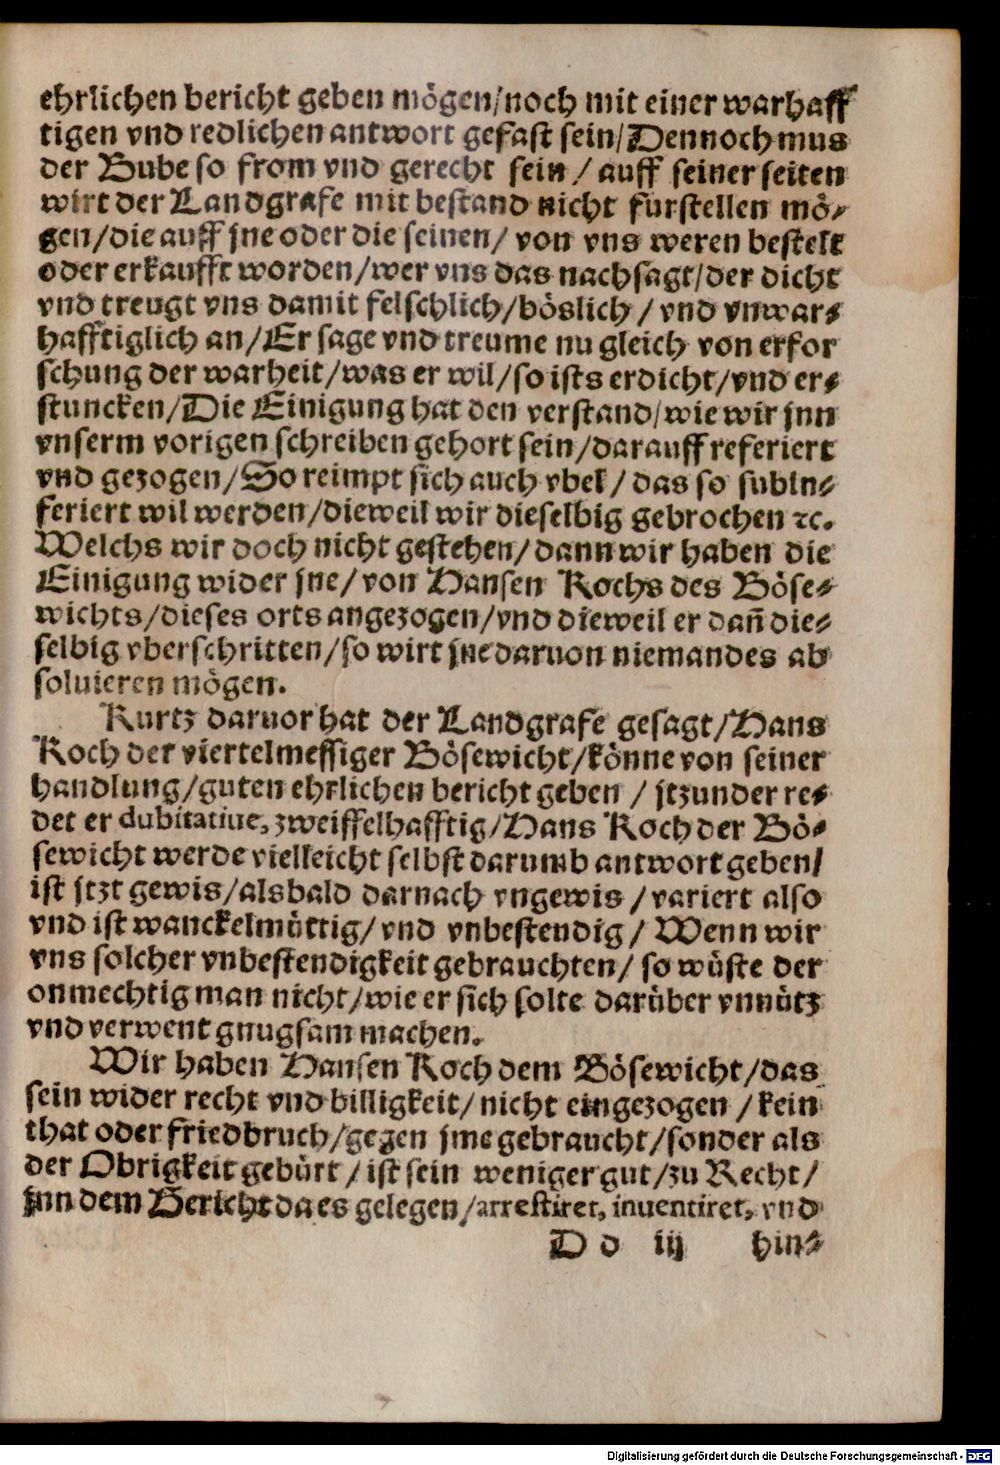 ehrlichen bericht geben mögen/noch mit einer warhaff
tigen vnd redlichen antwort gefast sein/Dennoch mus
der Bube so from vnd gerecht sein / auff seiner seiten
wirt der Landgrafe mit bestand nicht furstellen mö-
gen/die auff jne oder die seinen/ von vns weren bestelt
oder erkaufft worden/wer vns das nachsagt/der dicht
vnd treugt vns damit felschlich/böslich / vnd vnwar-
hafftiglich an/Er sage vnd treume nu gleich von erfor
schung der warheit/was er wil/so ists erdicht/vnd er-
stuncken/Die Einigung hat den verstand/wie wir jnn
vnserm vorigen schreiben gehort sein/darauff referiert
vnd gezogen/So reimpt sich auch vbel/ das so subin-
feriert wil werden/dieweil wir dieselbig gebrochen ꝛc.
Welchs wir doch nicht gestehen/dann wir haben die
Einigung wider jne/von Hansen Kochs des Böse-
wichts/dieses orts angezogen/vnd dieweil er dañ die-
selbig vberschritten/so wirt jne daruon niemandes ab
soluieren mögen.
Kurtz daruor hat der Landgrafe gesagt/Hans
Koch der viertelmessiger Bösewicht/könne von seiner
handlung/guten ehrlichen bericht geben / jtzunder re-
det er dubitatiue, zweiffelhafftig/Hans Koch der Bö-
sewicht werde vielleicht selbst darumb antwort geben/
ist jtzt gewis/alsbald darnach vngewis / variert also
vnd ist wanckelmüttig/ vnd vnbestendig / Wenn wir
vns solcher vnbestendigkeit gebrauchten/ so wüste der
onmechtig man nicht/wie er sich solte darüber vnnütz
vnd verwent gnugsam machen.
Wir haben Hansen Koch dem Bösewicht/das
sein wider recht vnd billigkeit/ nicht eingezogen / kein
that oder friedbruch/gegen jme gebraucht/sonder als
der Obrigkeit gebürt / ist sein weniger gut/zu Recht/
jnn dem Gericht da es gelegen/arrestiret, inuentiret, vnd
D d iij hin-
Digitalisierung gefördert durch die Deutsche Forschungsgemeinschaft - DFG